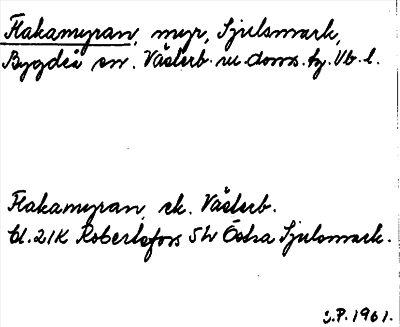 Flakamyran, myr, Sjulsmark,
Bygdeå sn. Västerb:ns doms. fg. Vb. l.
Flakamyran, ek. Västerb.
bl. 21K Robertsfors 5h Östra Sjulsmark.
S.P. 1961.